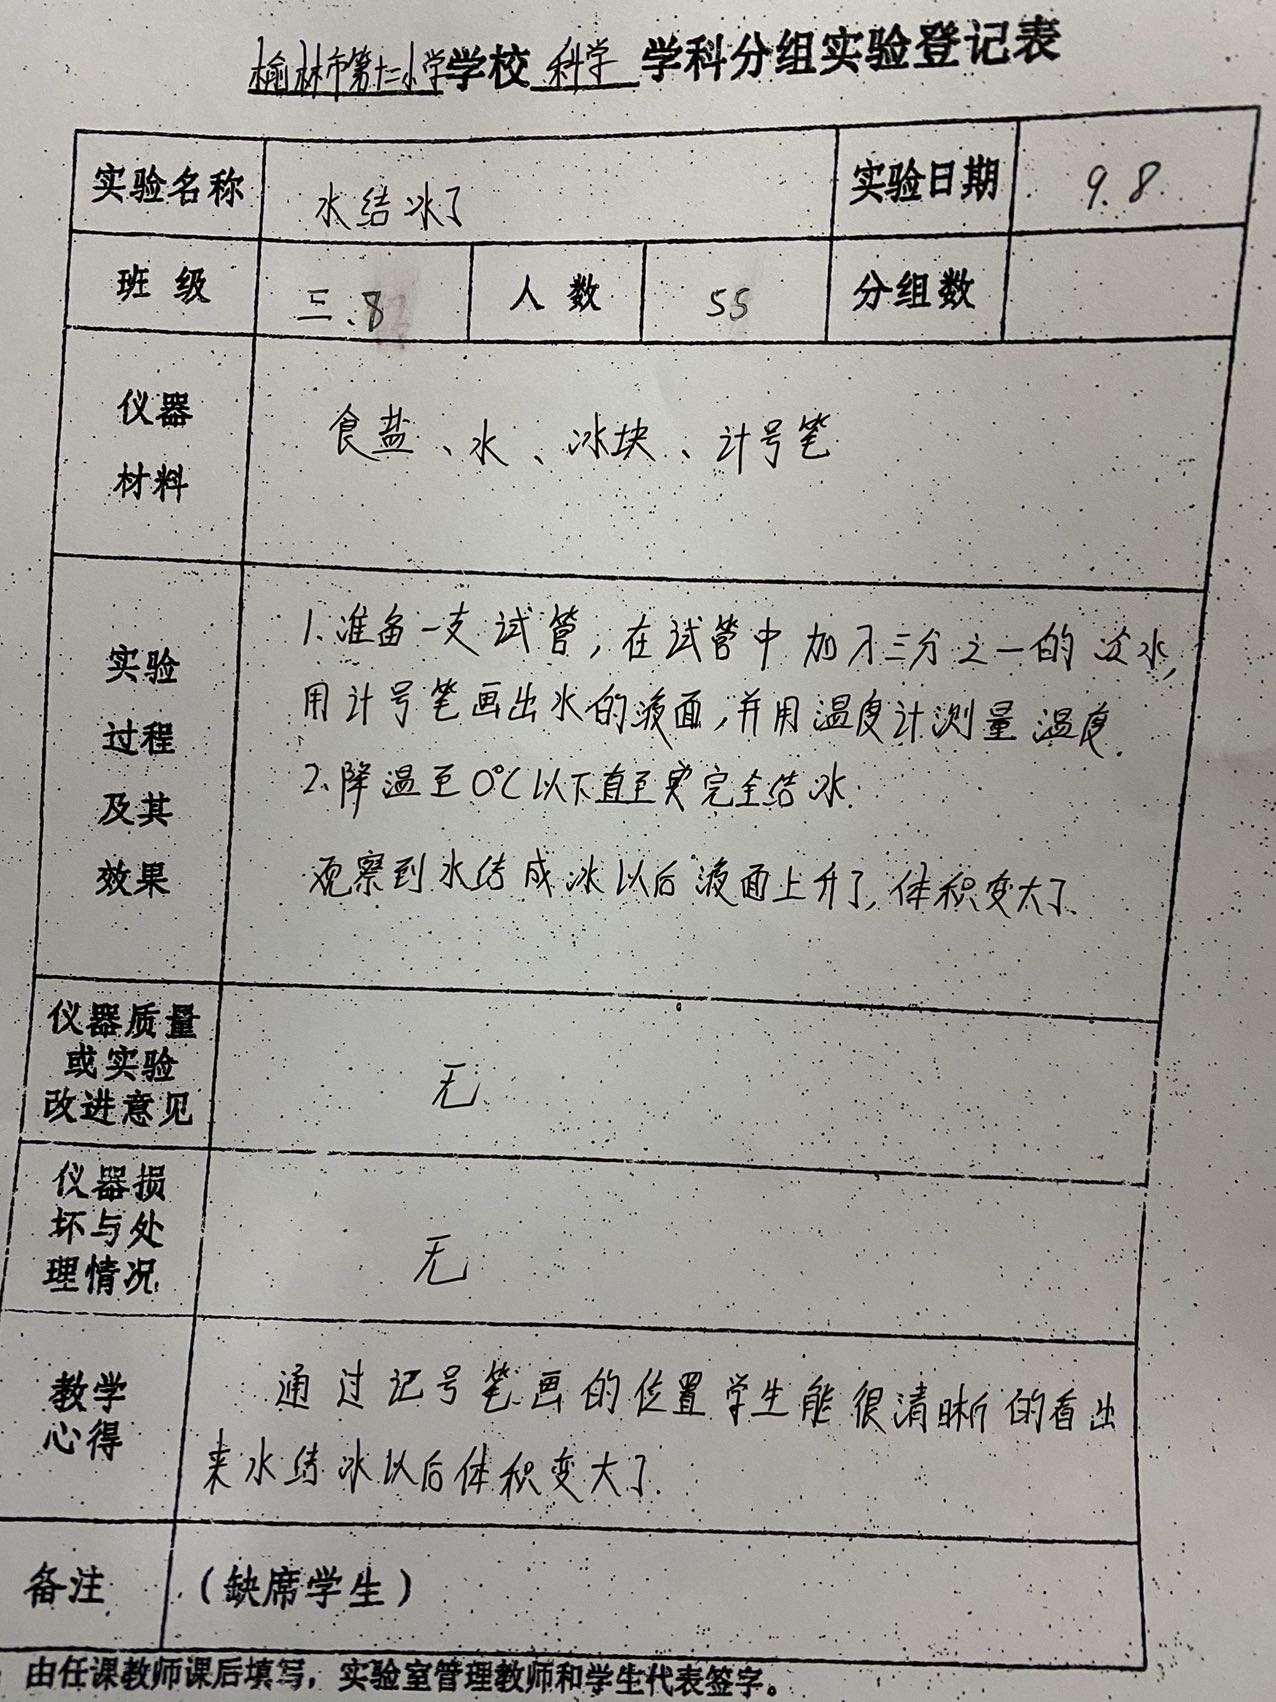 榆林市第十二小学学校 科学 学科分组实验登记表
实验名称 水结冰了 实验日期 9.8.
班级 三.8 人数 55 分组数
仪器
材料
食盐、水、冰块、计号笔
实验
过程
及其
效果
1.准备一支试管,在试管中加不三分之一的 水,
用计号笔画出水的液面,并用温度计测量温度.
2.降温至0℃以下直至 完全结冰.
观察到水结成冰以后液面上升了,体积变大了.
仪器质量
或实验
改进意见
无
仪器损
坏与处
理情况
无
教学
心得
通过记号笔画的位置学生能很清晰的看出
来水结冰以后体积变大了.
备注 (缺席学生)
由任课教师课后填写,实验室管理教师和学生代表签字。